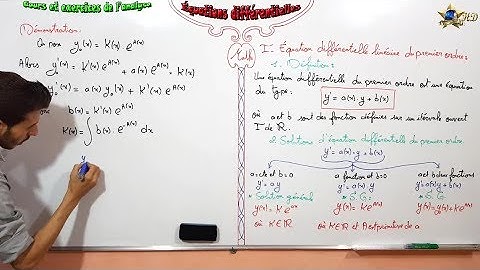 Cours et exercices de l'analyse
Équations différentielles
Démonstration:
On pose y₀(x) = K(x) . e^A(x)
Alors y₀'(x) = K'(x) e^A(x) + a(x) . e^A(x) . K(x)
y₀'(x) = a(x) y₀(x) + K'(x) e^A(x)
b(x) = K'(x) e^A(x)
K(x) = ∫ b(x) . e^-A(x) dx
y
I. Équation différentielle linéaire du premier ordre:
1. Définition:
Une équation différentielle du premier ordre est une équation
du type: y' = a(x) . y + b(x)
où a et b sont des fonction définies sur un intervalle ouvert
I de ℝ.
2. Solutions d'équation différentielle du premier ordre
y' = a(x) . y + b(x)
a = cte et b = 0
y' = a . y
* Solution générale
y(x) = K e^ax
où K ∈ ℝ
a fonction et b = 0
y' = a(x) . y
* S. G.
y(x) = K e^A(x)
où K ∈ ℝ et A est primitive de a
a et b deux fonctions
y' = a(x) y + b(x)
* S. G.
y(x) = y₀(x) + K e^A(x)